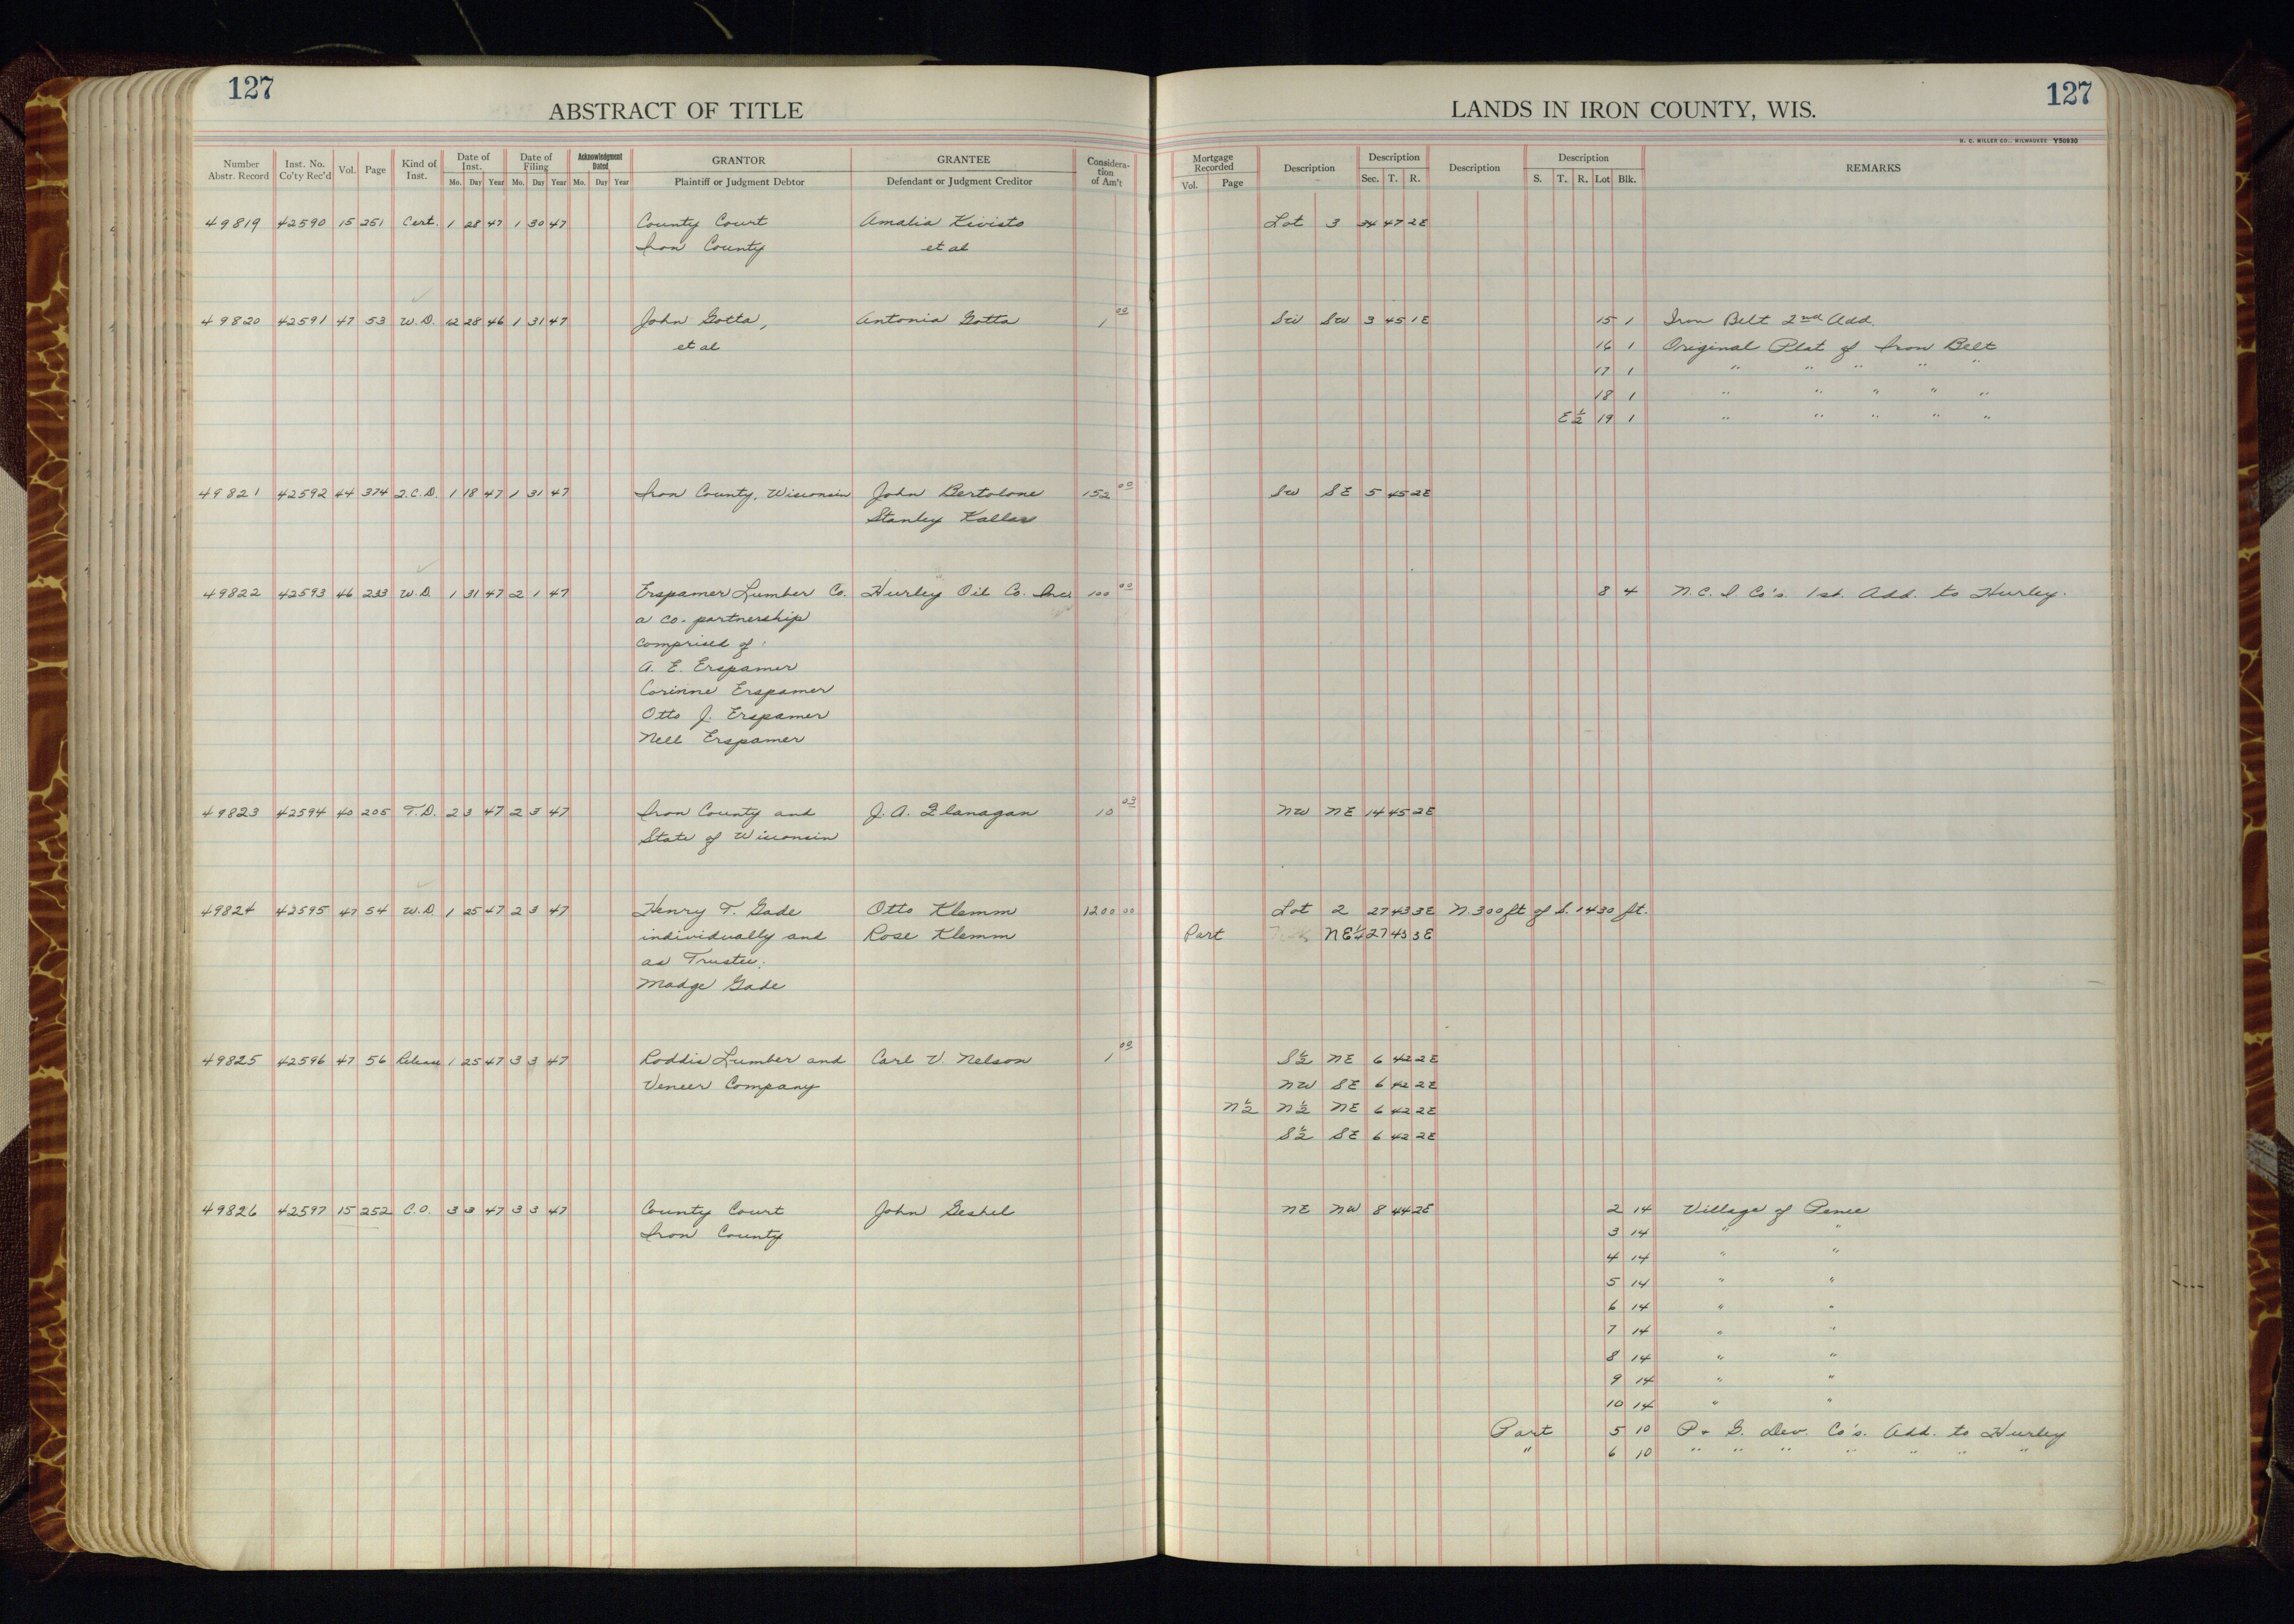 127
ABSTRACT OF TITLE
Number Abstr. Record | Inst. No. Co'ty Rec'd | Vol. | Page | Kind of Inst. | Date of Inst. Mo. Day Year | Date of Filing Mo. Day Year | Acknowledgment Dated Mo. Day Year | GRANTOR Plaintiff or Judgment Debtor | GRANTEE Defendant or Judgment Creditor | Considera-tion of Am't
49819 42590 15 251 Cert. 1 28 47 1 30 47 County Court Amalia Kivisto
Iron County et al
49820 42591 47 53 W.D. 12 28 46 1 31 47 John Gotta, Antonia Gotta 1 00
et al
49821 42592 44 374 Q.C.D. 1 18 47 1 31 47 Iron County, Wisconsin John Bertolone 152 00
Stanley Kallas
49822 42593 46 233 W.D. 1 31 47 2 1 47 Erspamer Lumber Co. Hurley Oil Co. Inc. 100 00
a co-partnership
comprised of:
A. E. Erspamer
Corinne Erspamer
Otto J. Erspamer
Nell Erspamer
49823 42594 40 205 T.D. 2 3 47 2 3 47 Iron County and J. A. Flanagan 10 03
State of Wisconsin
49824 42595 47 54 W.D. 1 25 47 2 3 47 Henry T. Gade Otto Klemm 1200 00
individually and Rose Klemm
as Trustee;
Madge Gade
49825 42596 47 56 Release 1 25 47 3 3 47 Roddis Lumber and Carl V. Nelson 1 00
Veneer Company
49826 42597 15 252 C.O. 3 3 47 3 3 47 County Court John Geshel
Iron County
127
LANDS IN IRON COUNTY, WIS.
H. C. MILLER CO., MILWAUKEE Y50930
Mortgage Recorded Vol. Page | Description | Description Sec. T. R. | Description | Description S. T. R. Lot Blk. | REMARKS
Lot 3 34 47 2E
SW SW 3 45 1E 15 1 Iron Belt 2nd Add.
16 1 Original Plat of Iron Belt
17 1 " " " " "
18 1 " " " " "
E½ 19 1 " " " " "
SW SE 5 45 2E
8 4 N.C.I Co's. 1st. Add. to Hurley.
NW NE 14 45 2E
Lot 2 27 43 3E N. 300 ft of S. 1430 ft.
Part NE¼ 27 43 3E
S½ NE 6 42 2E
NW SE 6 42 2E
N½ N½ NE 6 42 2E
S½ SE 6 42 2E
NE NW 8 44 2E 2 14 Village of Pence
3 14 " "
4 14 " "
5 14 " "
6 14 " "
7 14 " "
8 14 " "
9 14 " "
10 14 " "
Part 5 10 P. & G. Dev. Co's. Add. to Hurley
" 6 10 " " " " " " "